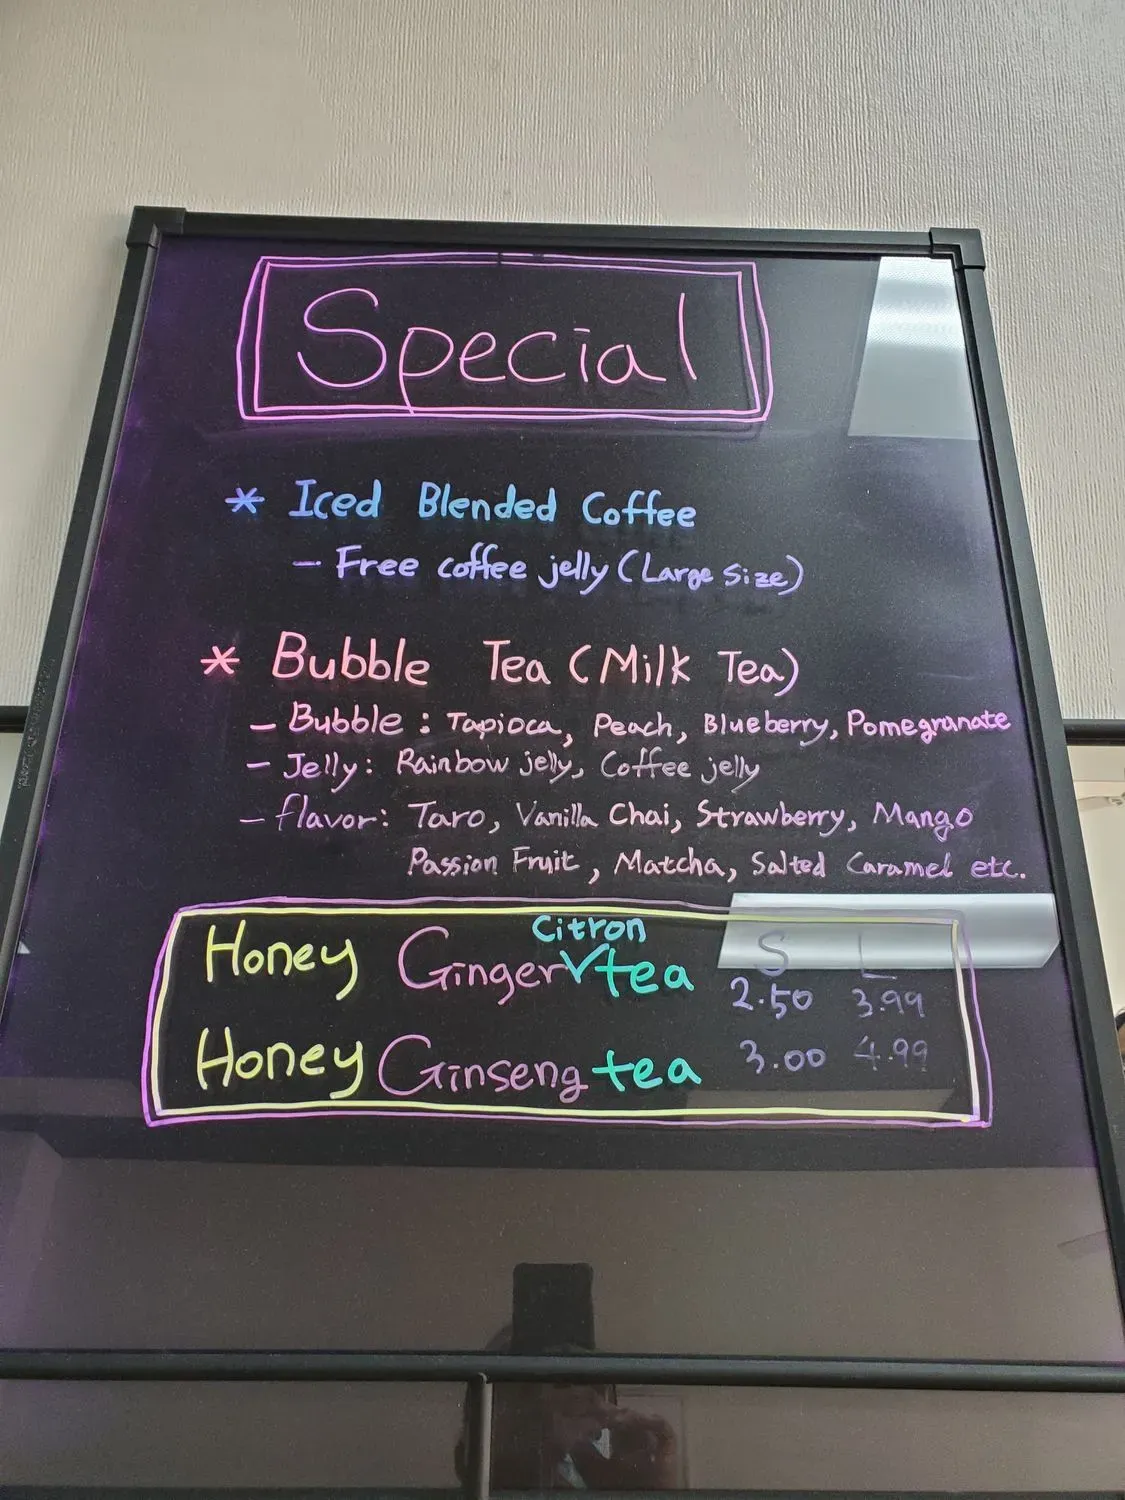 Special
* Iced Blended Coffee
- Free coffee jelly (Large Size)
* Bubble Tea (Milk Tea)
- Bubble : Tapioca, Peach, Blueberry, Pomegranate
- Jelly : Rainbow jelly, Coffee jelly
- flavor : Taro, Vanilla Chai, Strawberry, Mango
Passion Fruit, Matcha, Salted Caramel etc.
S L
Honey Ginger Citron tea 2.50 3.99
Honey Ginseng tea 3.00 4.99